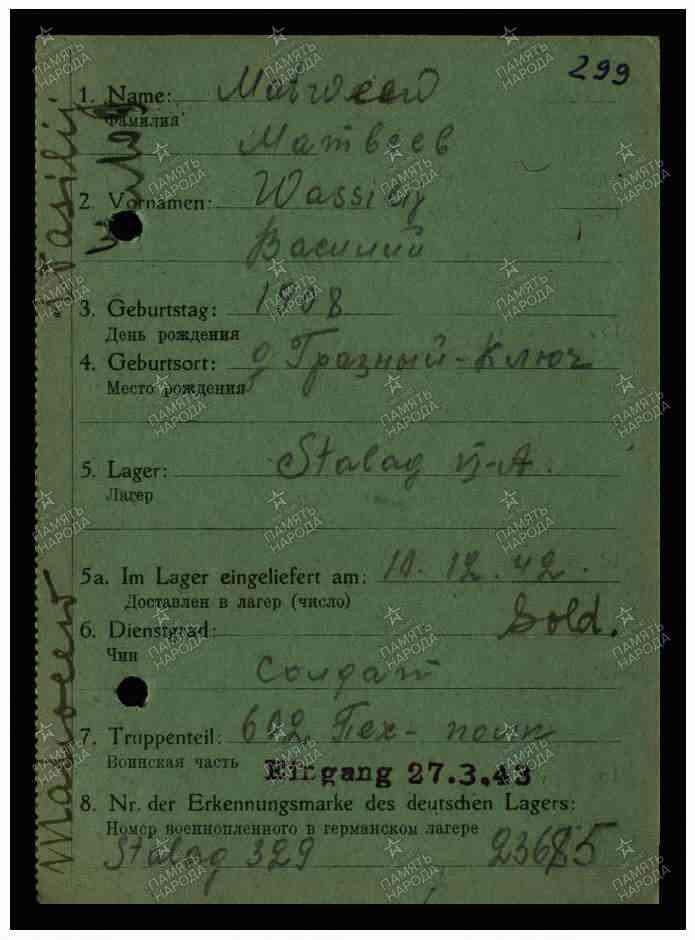 299
1. Name:
Фамилия
Матвеев
2. Vornamen: Wassilij
Василий
3. Geburtstag: 1908
День рождения
4. Geburtsort: Гразный-Ключ
Место рождения
5. Lager: Stalag II-A.
Лагер
5a. Im Lager eingeliefert am: 10.12.42.
Доставлен в лагер (число)
6. Dienstgrad: Sold.
Чин
Солдат
7. Truppenteil: Пех-полк
Воинская часть
Eingang 27.3.43
8. Nr. der Erkennungsmarke des deutschen Lagers:
Номер военнопленного в германском лагере
Stalag 329 23685
Wassilij
ПАМЯТЬ НАРОДА